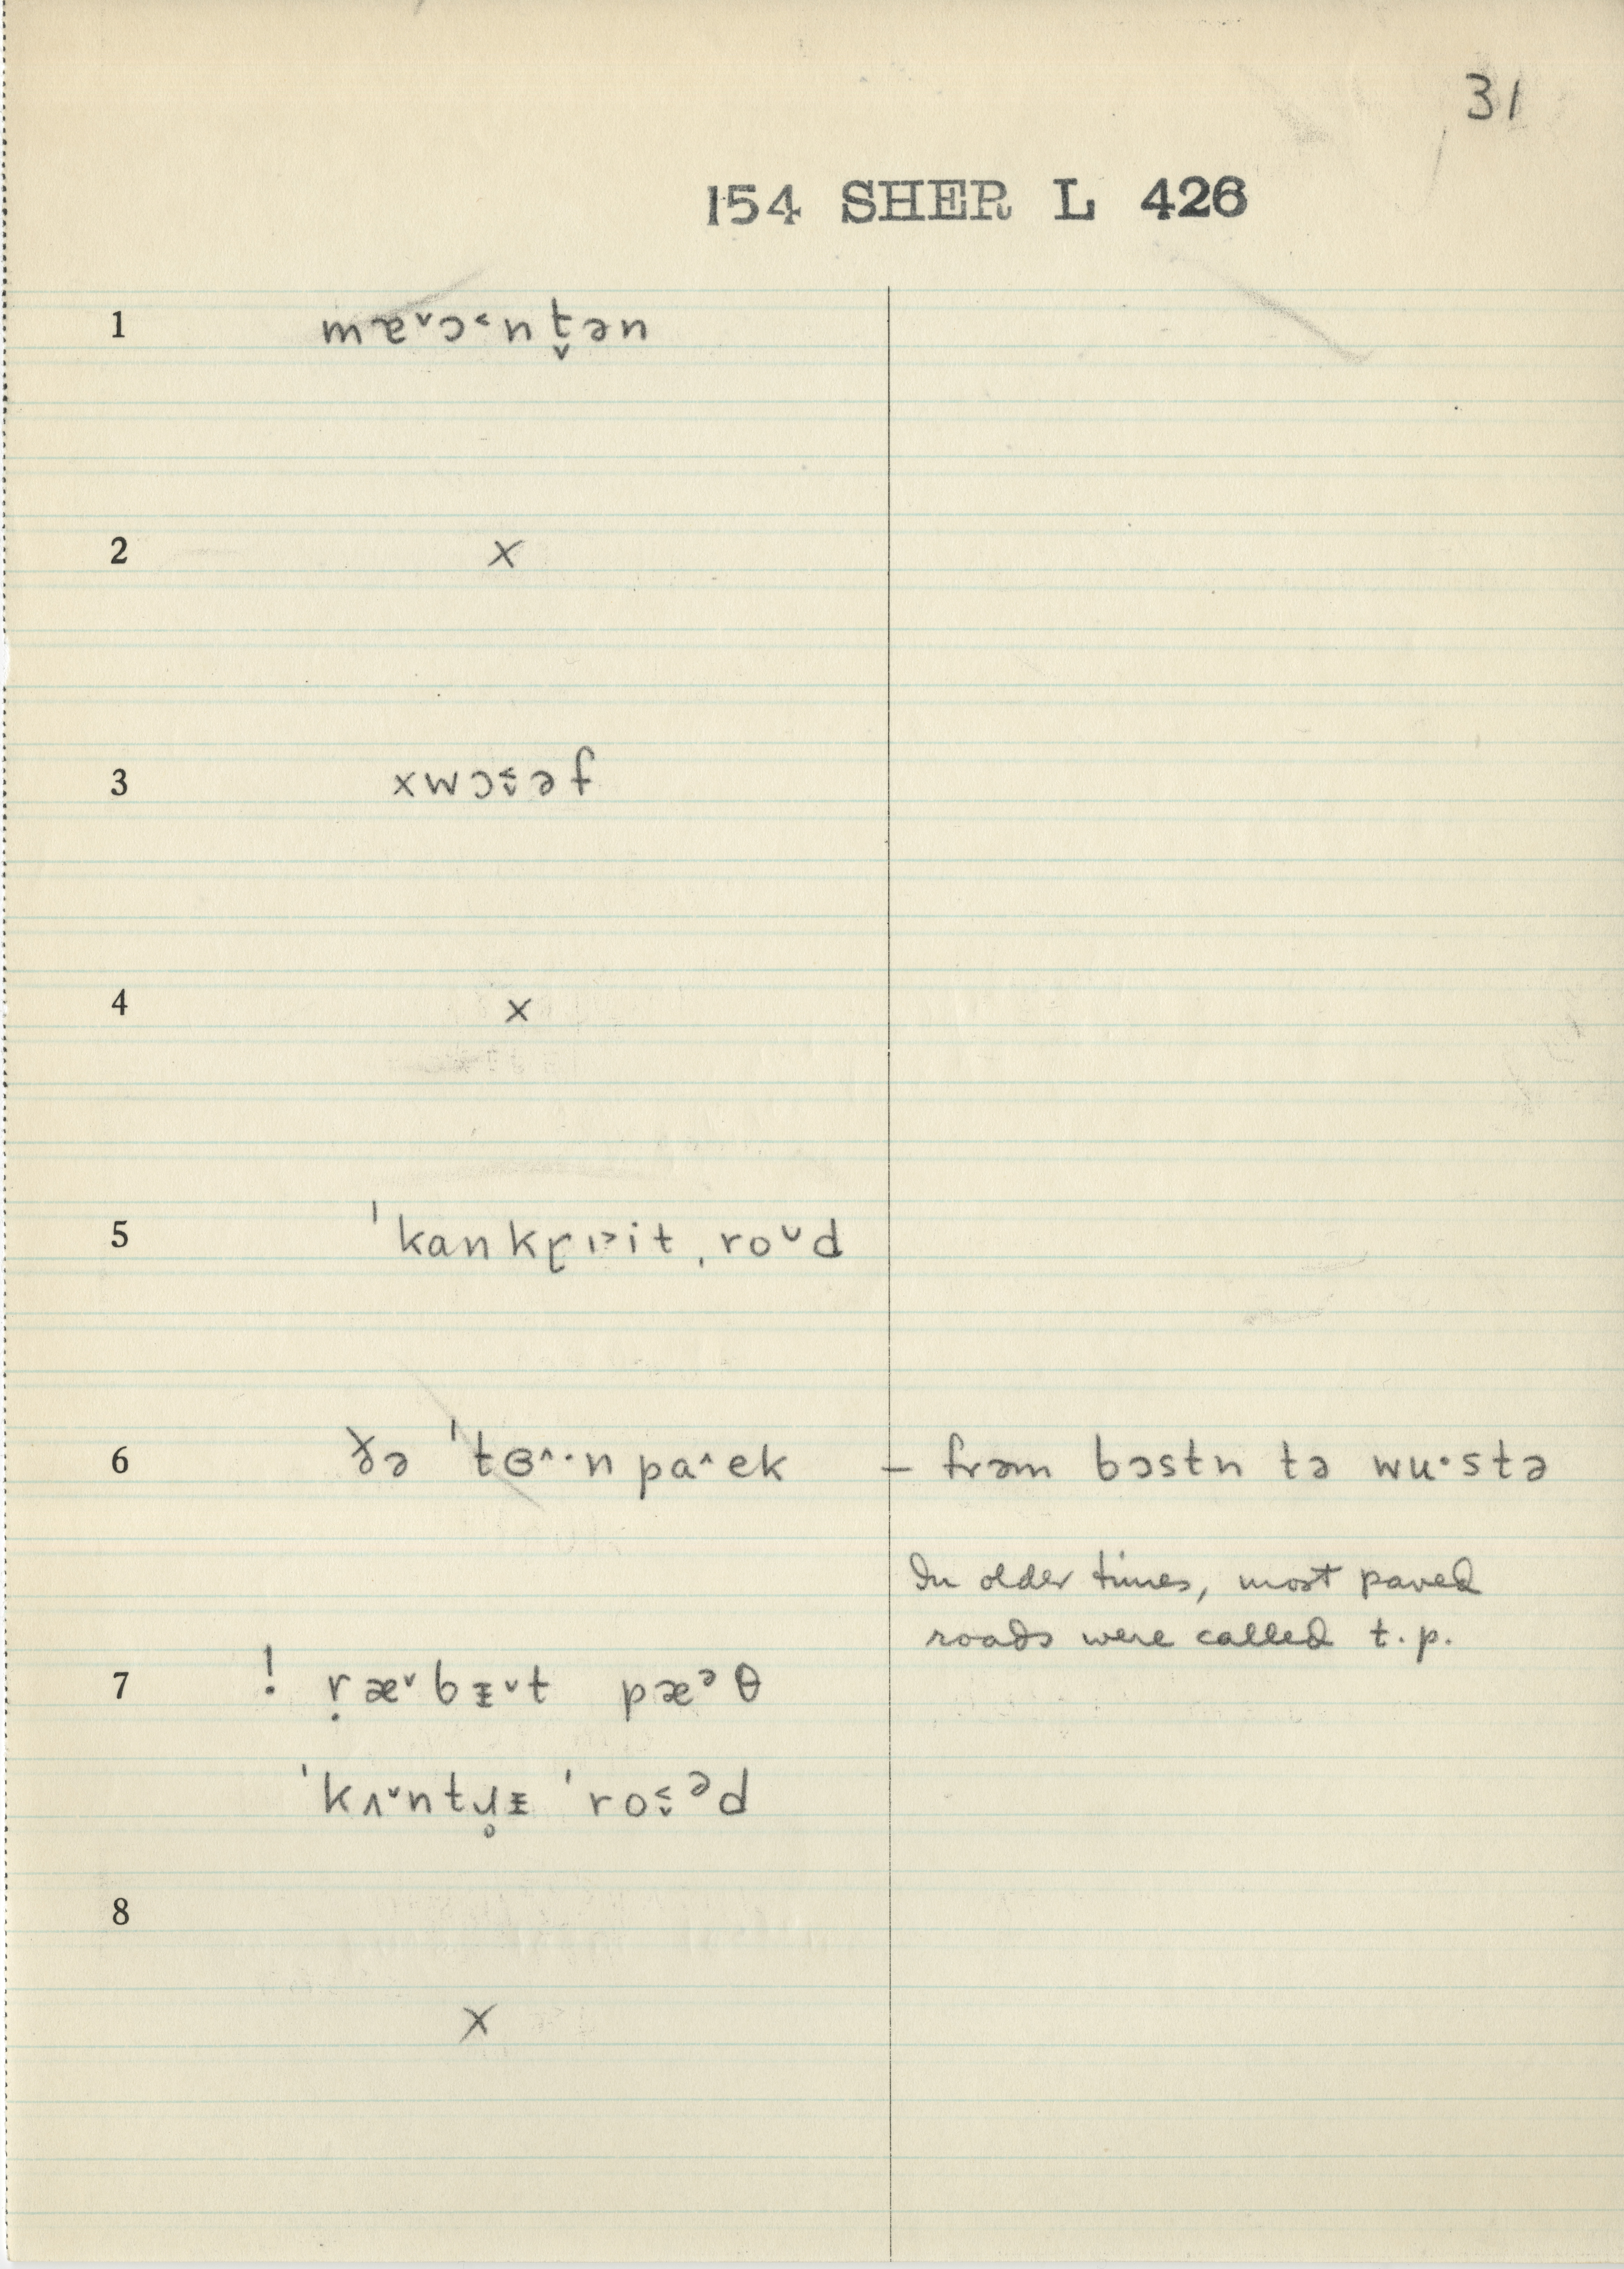 31
154 SHER L 426
1 mɐ˅ɔ˂nt̬ən
2 x
3 xwɔ˂̬əf
4 x
5 ˈkankɽɪ˃it ˌro˅d
6 ðə ˈtɞ^·npa^ɐk – frəm bɔstn tə wu·stə
In older times, most paved
roads were called t.p.
7 ! ṛæ˅bᵻ˅t pæᵊθ
ˈkʌ˅ntɹ̥ᵻ ˈro˂̬ᵊd
8
x